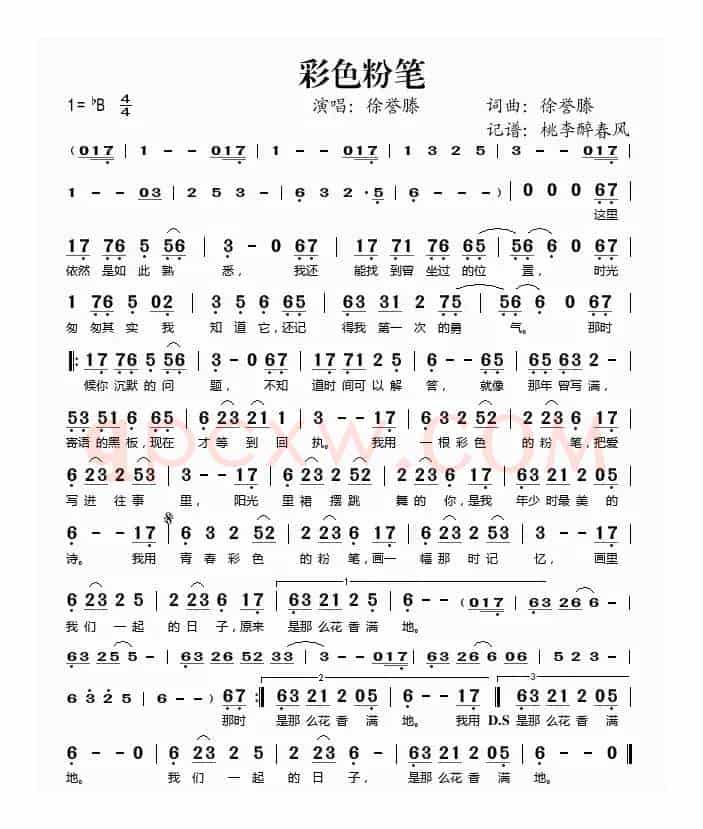 彩色粉笔
1=♭B 4/4 演唱：徐誉滕 词曲：徐誉滕
记谱：桃李醉春风
(017 | 1 - - 017 | 1 - - 017 | 1 - - 017 | 1 3 2 5 | 3 - - 017
1 - - 03 | 2 5 3 - | 6 3 2 · 5 | 6 - - - ) | 0 0 0 67
这里
17 76 5 56 | 3 - 0 67 | 17 71 76 65 | 56 6 0 67
依然 是如 此 熟 悉， 我还 能找 到曾 坐过 的位 置， 时光
1 76 5 02 | 3 5 6 65 | 63 31 2 75 | 56 6 0 67
匆 匆其 实 我 知 道 它，还记 得我 第一 次 的勇 气。 那时
17 76 5 56 | 3 - 0 67 | 17 71 2 5 | 6 - - 65 | 65 63 2 -
候你 沉默 的 问 题， 不知 道时 间可 以 解 答， 就像 那年 曾写 满，
53 51 6 65 | 6 23 21 1 | 3 - - 17 | 6 3 2 52 | 2 23 6 17
寄语 的黑 板，现在 才 等 到 回 执。 我用 一 根 彩 色 的 粉 笔，把爱
6 23 2 53 | 3 - - 17 | 6 23 2 52 | 2 23 6 17 | 6 23 21 05
写 进 往 事 里， 阳光 里 裙 摆 跳 舞 的 你，是我 年 少时 最美 的
6 - - 17 | 6 3 2 52 | 2 23 6 17 | 6 23 2 53 | 3 - - 17
诗。 我用 青 春 彩 色 的 粉 笔，画一 幅 那 时 记 忆， 画里
1
6 23 2 5 | 2 23 6 17 | 63 21 2 05 | 6 - - (017 | 63 26 6 -
我 们 一 起 的 日 子，原来 是那 么花 香 满 地。
63 25 5 - | 63 26 52 33 | 3 - - 017 | 63 26 6 06 | 5 2 3 -
2 3
6 3 25 | 6 - - - ) | 67 :‖ 63 21 2 05 | 6 - - 17 ‖ 63 21 2 05
那时 是那 么花 香 满 地。 我用 D.S 是那 么花 香 满
6 - - 0 | 6 23 2 5 | 2 23 6 - | 63 21 2 05 | 6 - - 0 ‖
地。 我 们 一 起 的 日 子， 是那 么花 香 满 地。
qpcxw.COM